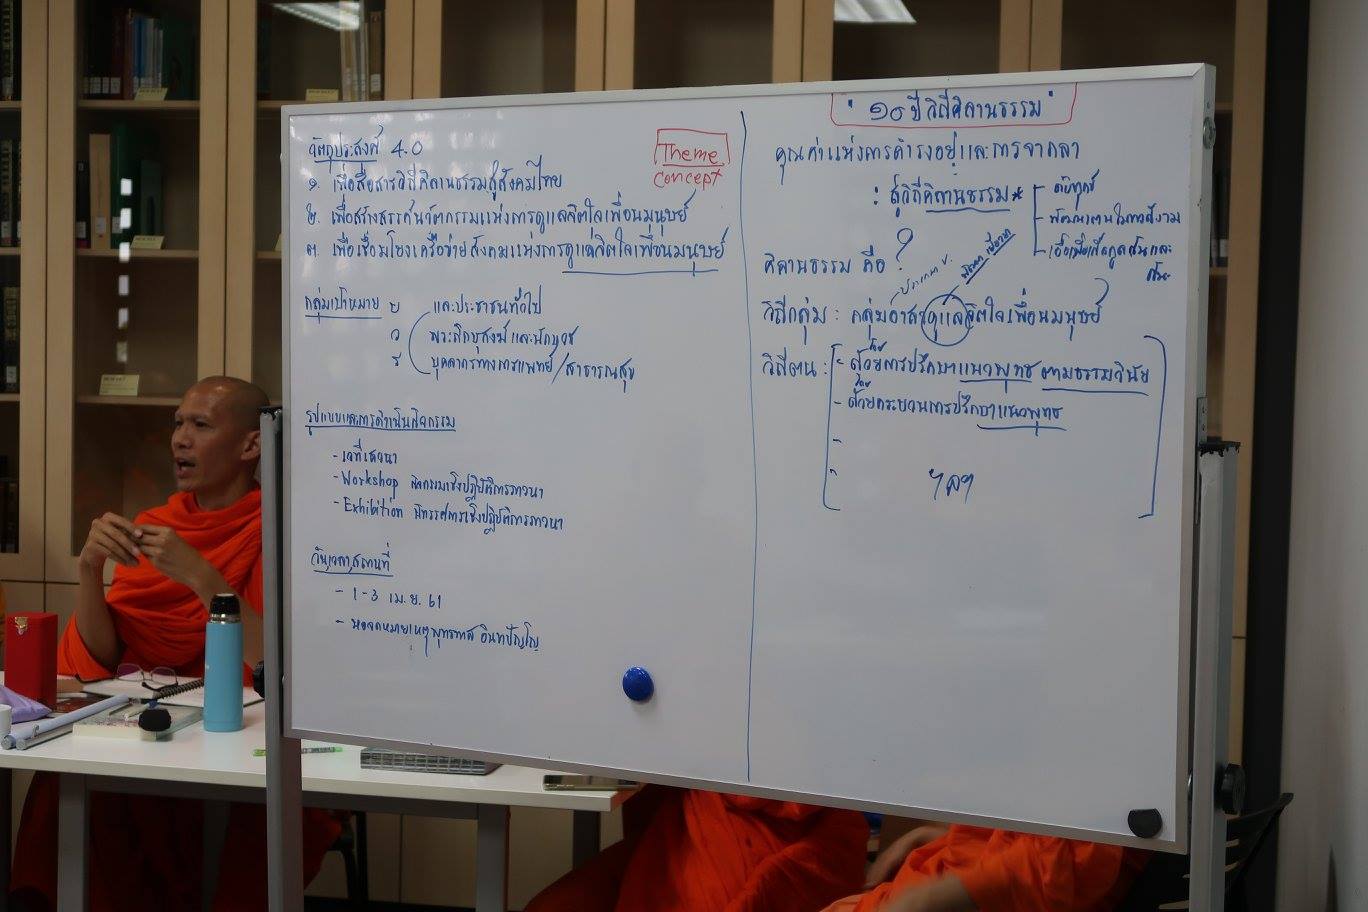 วัตถุประสงค์ 4.0
๑. เพื่อสื่อสารวิถีคิลานธรรมสู่สังคมไทย
๒. เพื่อสร้างสรรค์นวัตกรรมแห่งการดูแลจิตใจเพื่อนมนุษย์
๓. เพื่อเชื่อมโยงเครือข่ายสังคมแห่งการดูแลจิตใจเพื่อนมนุษย์
Theme
concept
กลุ่มเป้าหมาย
และประชาชนทั่วไป
พระภิกษุสงฆ์และนักบวช
บุคลากรทางการแพทย์/สาธารณสุข
รูปแบบและการดำเนินกิจกรรม
- เวทีเสวนา
- Workshop กิจกรรมเชิงปฏิบัติการภาวนา
- Exhibition นิทรรศการเชิงปฏิบัติการภาวนา
วัน,เวลา,สถานที่
- 1-3 เม.ย. 61
- หอจดหมายเหตุพุทธทาส อินทปัญโญ
" ๑๐ ปี วิถีคิลานธรรม "
คุณค่าแห่งการดำรงอยู่และการจากลา
: สู่วิถีคิลานธรรม*
- ดับทุกข์
- พัฒนาตนในทางธรรม
- เอื้อเฟื้อเกื้อกูลตนและ
คิลานธรรม คือ ?
วิถีกลุ่ม : กลุ่มอาสาดูแลจิตใจเพื่อนมนุษย์
วิถีตน : - ด้วยการปรึกษาแนวพุทธ ตามธรรมวินัย
- ด้วยกระบวนการปรึกษาแนวพุทธ
-
-
ฯลฯ